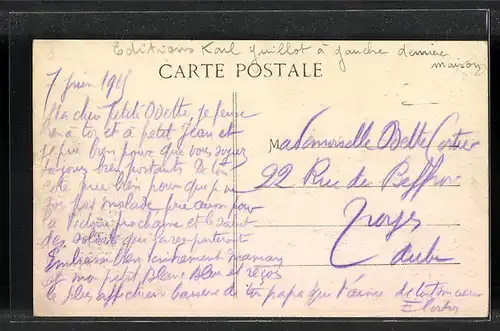 Editions Karl Guillot à gauche dernière
maison
CARTE POSTALE
7 juin 1915
Ma cher Petite Odette, je pense
à toi et à petit Jean et
je prie bien pour que vous soyez
toujours bien portants. De ton
coté prie bien pour que je ne
sois pas malade prie aussi pour
la victoire prochaine et le salut
des soldats qui
Embrasse bien tendrement maman
et mon petit et reçois
le plus affectueux baiser de ton papa qui t'aime de tout son coeur
Mademoiselle Odette Cortier
22 Rue du Beffroi
Troyes
Aube